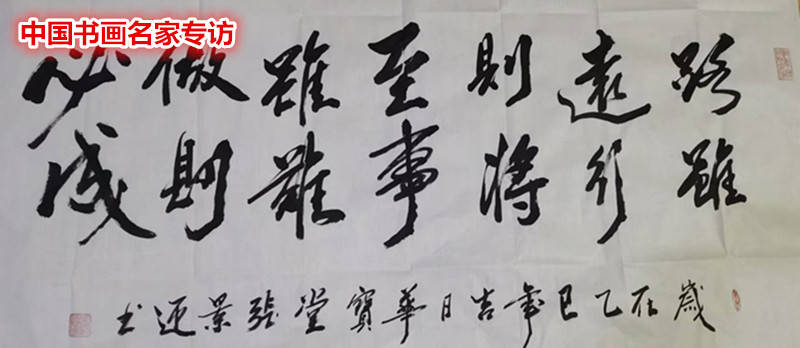 中国书画名家专访
路雖
遠行
則將
至事
雖難
做則
必成
歲在乙巳年吉日華寶堂張景迎书